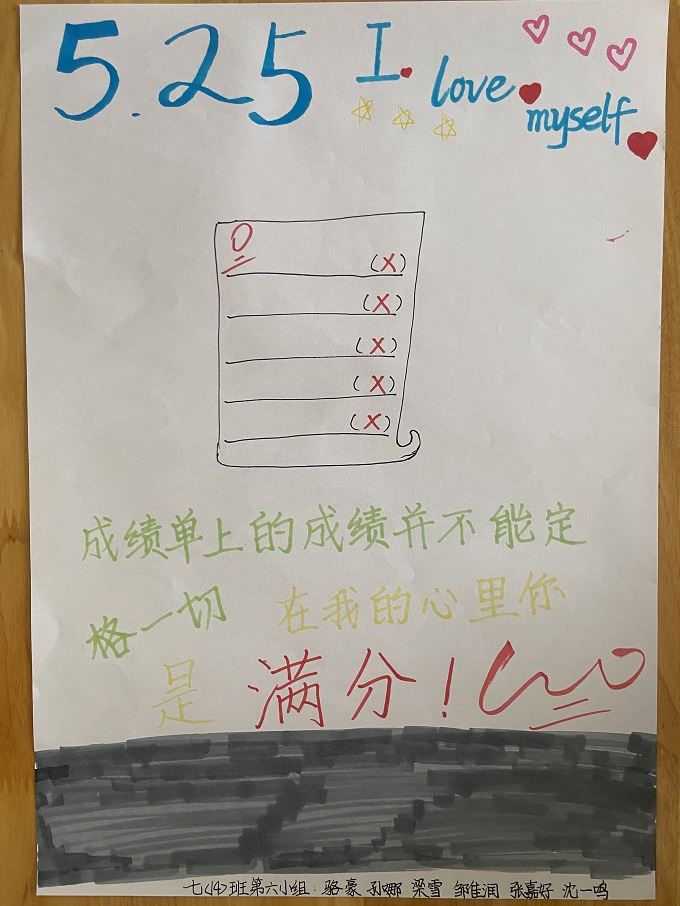 5.25 I love myself
0
(X)
(X)
(X)
(X)
(X)
成绩单上的成绩并不能定
格一切 在我的心里你
是 满分!
七(14)班第六小组: 骆豪 孙娜 梁雪 邹佳润 张嘉好 沈一鸣